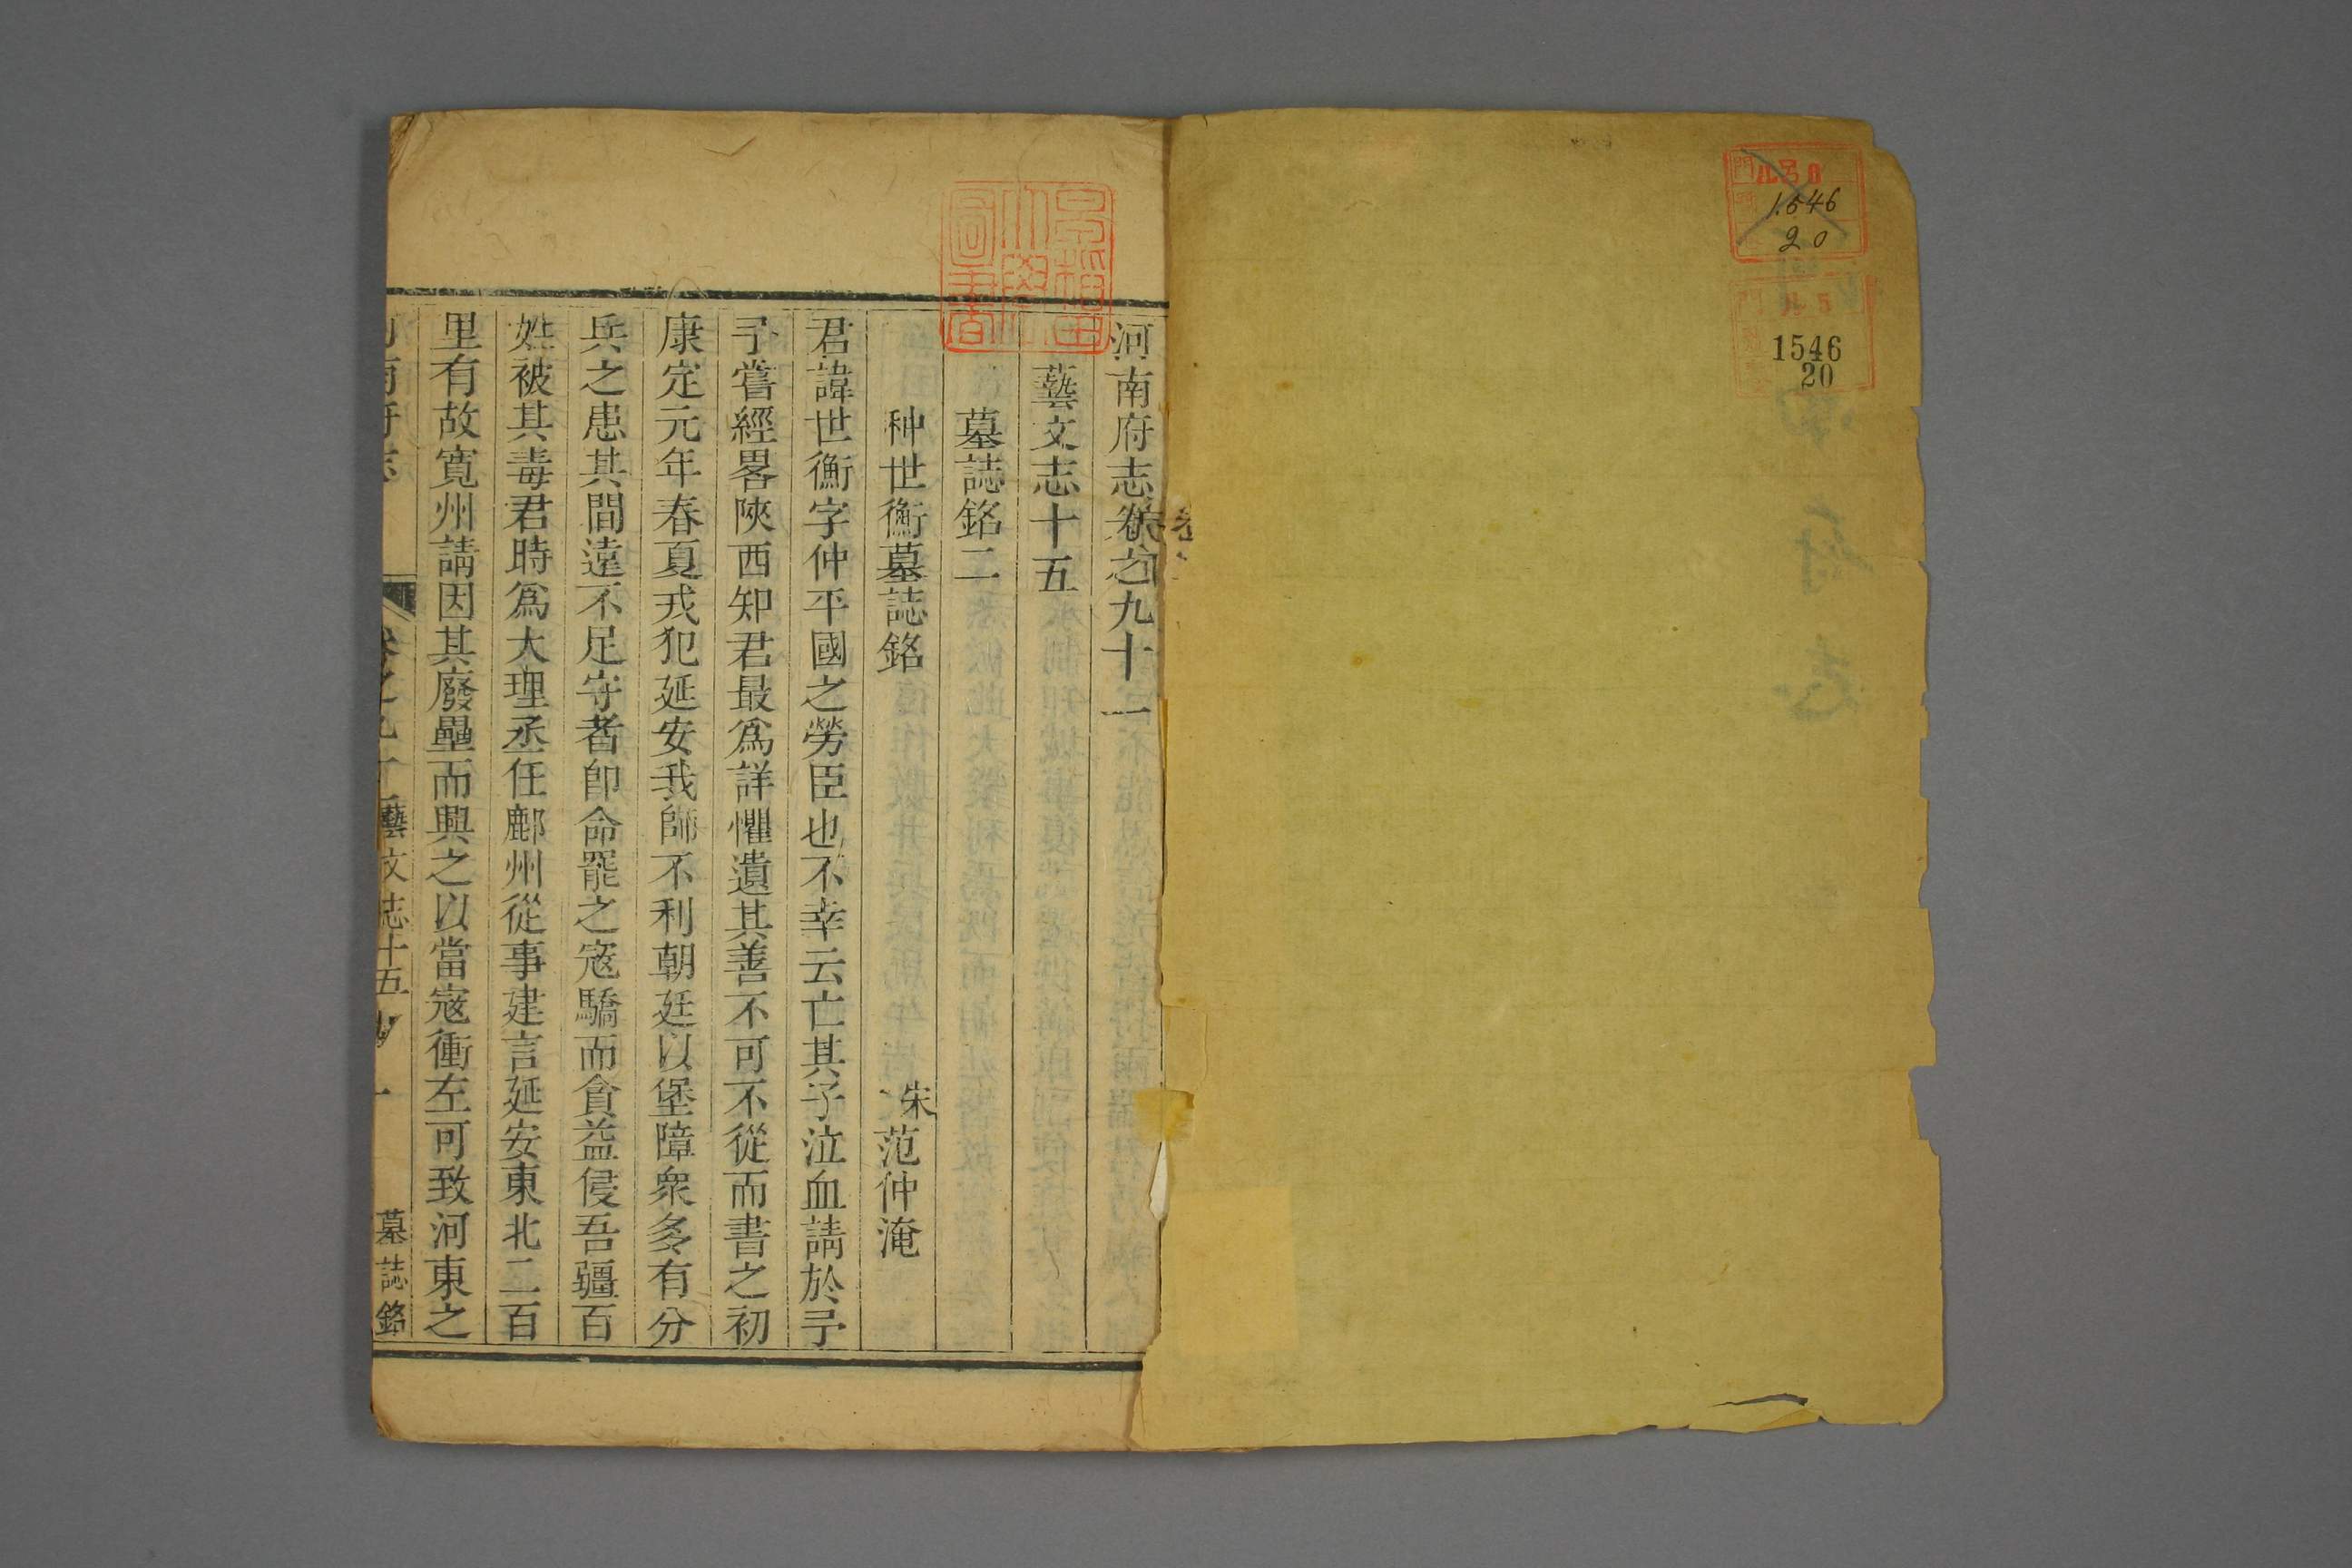 1546
20
1546
20
河南府志卷之九十一
藝文志十五
墓誌銘二
种世衡墓誌銘
宋范仲淹
君諱世衡字仲平國之勞臣也不幸云亡其子泣血請於予
予嘗經畧陝西知君最爲詳懼遺其善不可不從而書之初
康定元年春夏戎犯延安我師不利朝廷以堡障衆多有分
兵之患其間遠不足守者卽命罷之寇驕而貪益侵吾疆百
姓被其毒君時爲大理丞任鄜州從事建言延安東北二百
里有故寬州請因其廢壘而興之以當寇衝左可致河東之
藝文志十五
墓誌銘